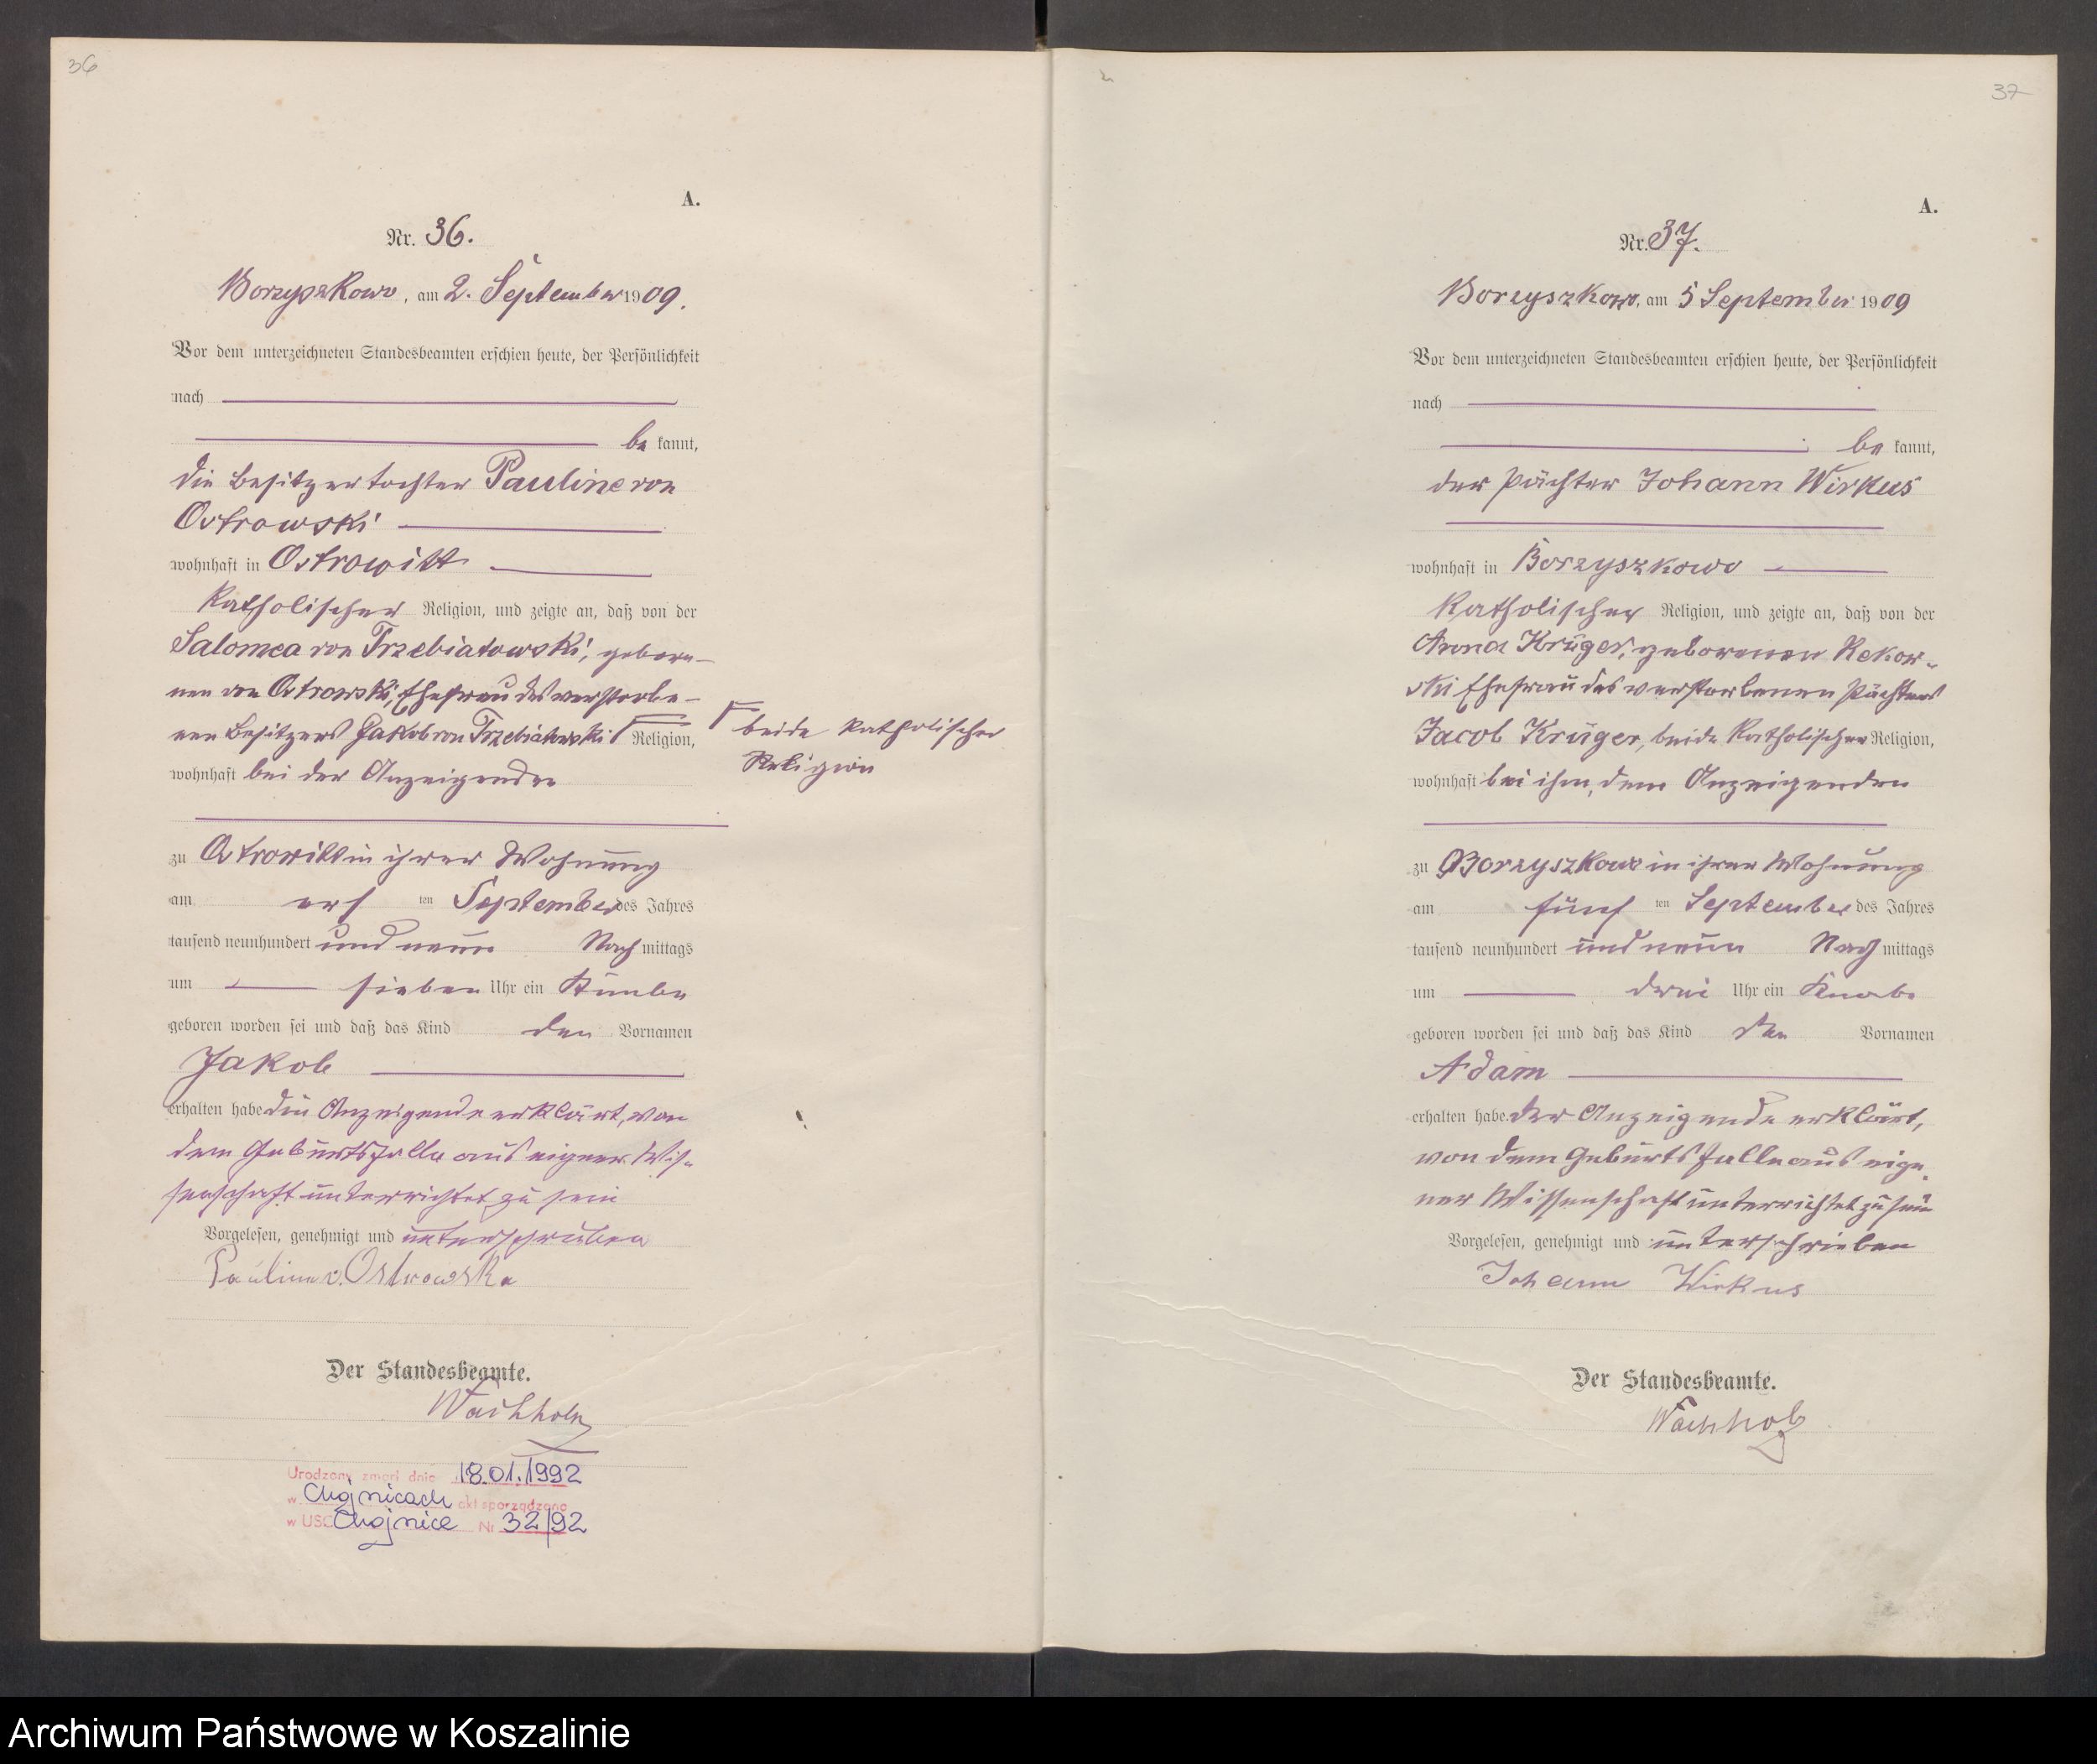 36
A.
Nr. 36.
Borzyszkowo, am 2. September 1909.
Vor dem unterzeichneten Standesbeamten erschien heute, der Persönlichkeit
nach
be kannt,
die Besitzertochter Pauline von
Ostrowski
wohnhaft in Ostrowitt
katholischer Religion, und zeigte an, daß von der
Salomea von Trzebiatowski, gebore-
nen von Ostrowski, Ehefrau des verstorbe-
nen Besitzers Jakob von Trzebiatowski Religion,
beide katholischer
Religion
wohnhaft bei der Anzeigenden
zu Ostrowitt in ihrer Wohnung
am ers ten September des Jahres
tausend neunhundert und neun Nach mittags
um sieben Uhr ein Knabe
geboren worden sei und daß das Kind den Vornamen
Jakob
erhalten habe die Anzeigende erklärt, von
dem Geburtsfalle aus eigner Wis-
senschaft unterrichtet zu sein
Vorgelesen, genehmigt und unterschrieben
Pauline v. Ostrowska
Der Standesbeamte.
Wachholz
Urodzony zmarł dnia 18.01.1992
w Chojnicach akt sporządzono
w USC Chojnice Nr 32/92
37
A.
Nr. 37.
Borzyszkowo, am 5 September 1909
Vor dem unterzeichneten Standesbeamten erschien heute, der Persönlichkeit
nach
be kannt,
der Pächter Johann Wirkus
wohnhaft in Borzyszkowo
katholischer Religion, und zeigte an, daß von der
Anna Krüger, geborenen Rekow-
ski Ehefrau des verstorbenen Pächters
Jacob Krüger, beide katholischer Religion,
wohnhaft bei ihm, dem Anzeigenden
zu Borzyszkowo in ihrer Wohnung
am fünf ten September des Jahres
tausend neunhundert und neun Nach mittags
um drei Uhr ein Knabe
geboren worden sei und daß das Kind den Vornamen
Adam
erhalten habe. Der Anzeigende erklärt,
von dem Geburtsfalle aus eige-
ner Wissenschaft unterrichtet zu sein
Vorgelesen, genehmigt und unterschrieben
Johann Wirkus
Der Standesbeamte.
Wachholz
Archiwum Państwowe w Koszalinie